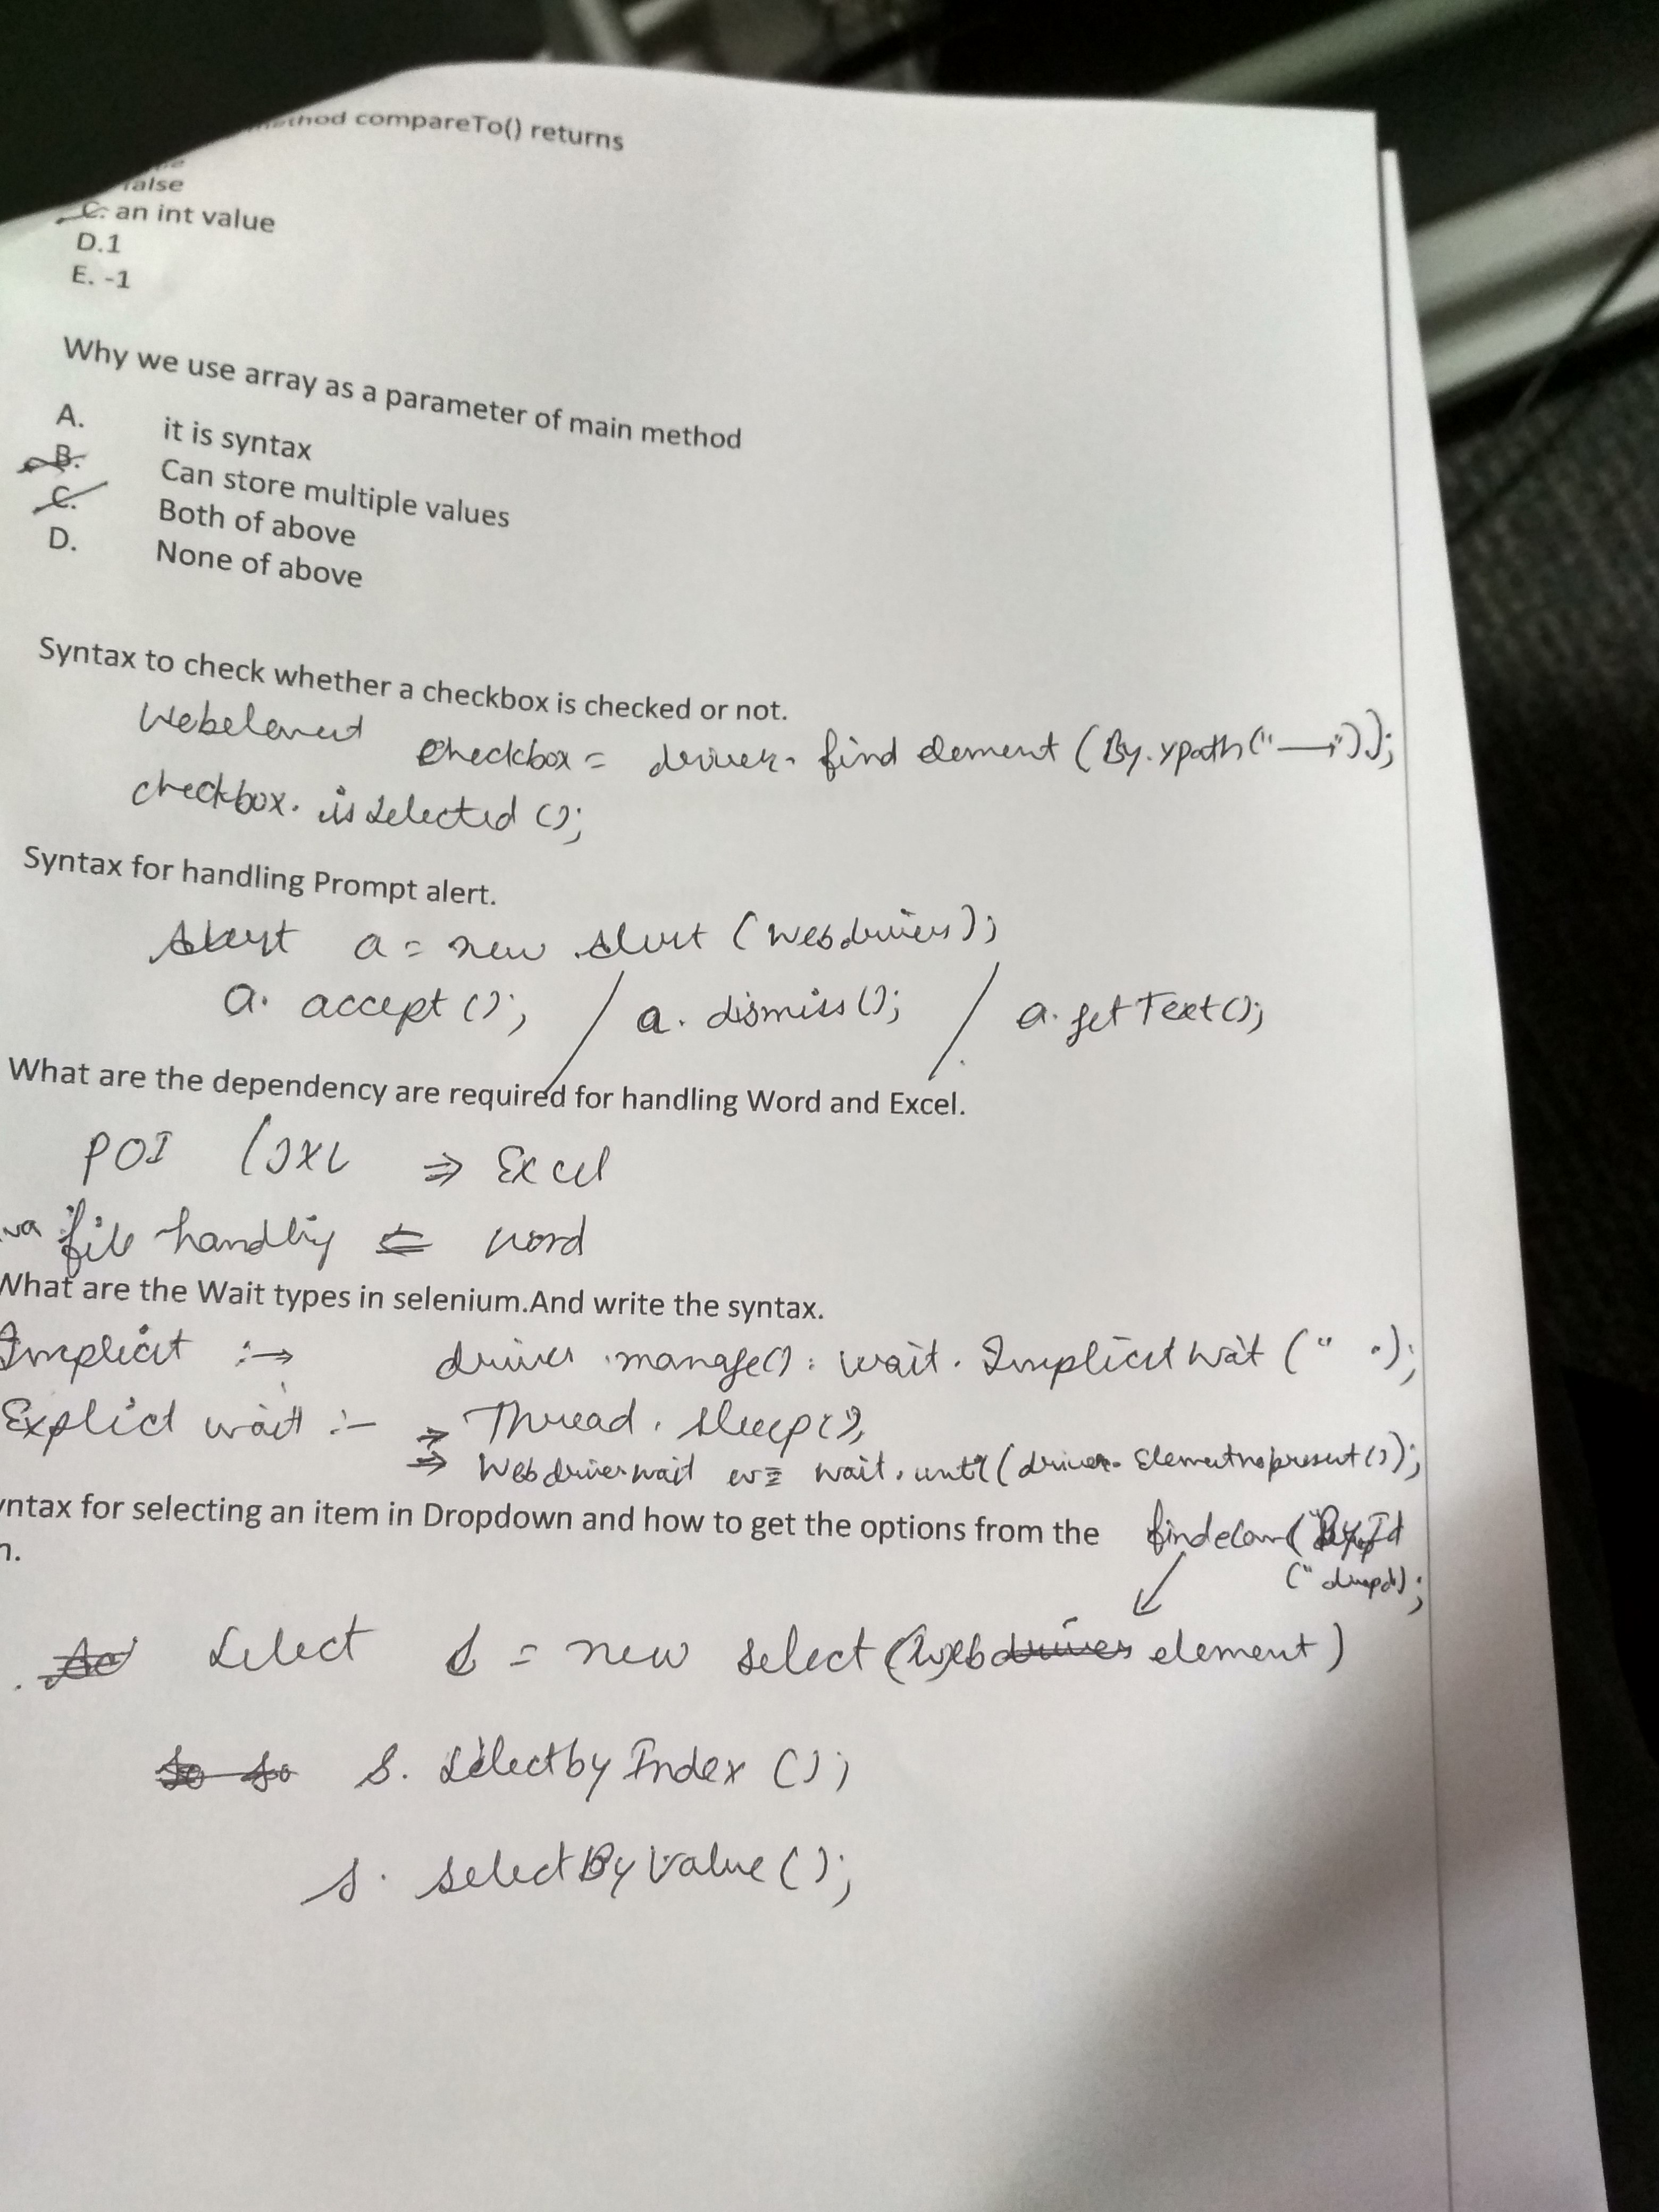 method compareTo() returns
false
C. an int value
D.1
E. -1
Why we use array as a parameter of main method
A. it is syntax
B. Can store multiple values
C. Both of above
D. None of above
Syntax to check whether a checkbox is checked or not.
Webelement checkbox = driver. find element (By.xpath("—"));
checkbox. is selected ();
Syntax for handling Prompt alert.
Alert a = new Alert (Webdriver);
a. accept (); / a. dismiss(); / a. getText();
What are the dependency are required for handling Word and Excel.
POI / JXL ⇒ Excel
file handling ⇐ word
What are the Wait types in selenium.And write the syntax.
Implicit :→ driver .manage(). wait. Implicit wait (" ");
Explict wait :- ⇒ Thread. sleep();
⇒ Webdriverwait = wait. until (driver.
yntax for selecting an item in Dropdown and how to get the options from the
n.
By.Id
Select s = new select (Web driver element)
s. selectby Index ();
s. selectByvalue ();